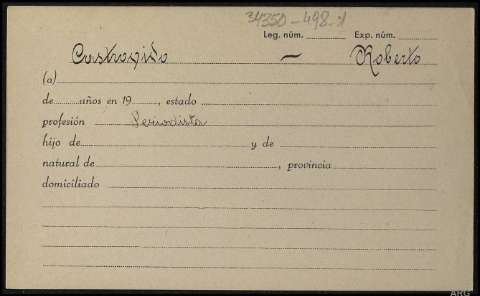 34350-498.
Leg. núm. Exp. núm.
Castrovido — Roberto
(a)
de años en 19 , estado
profesión Periodista
hijo de y de
natural de , provincia
domiciliado
ARG